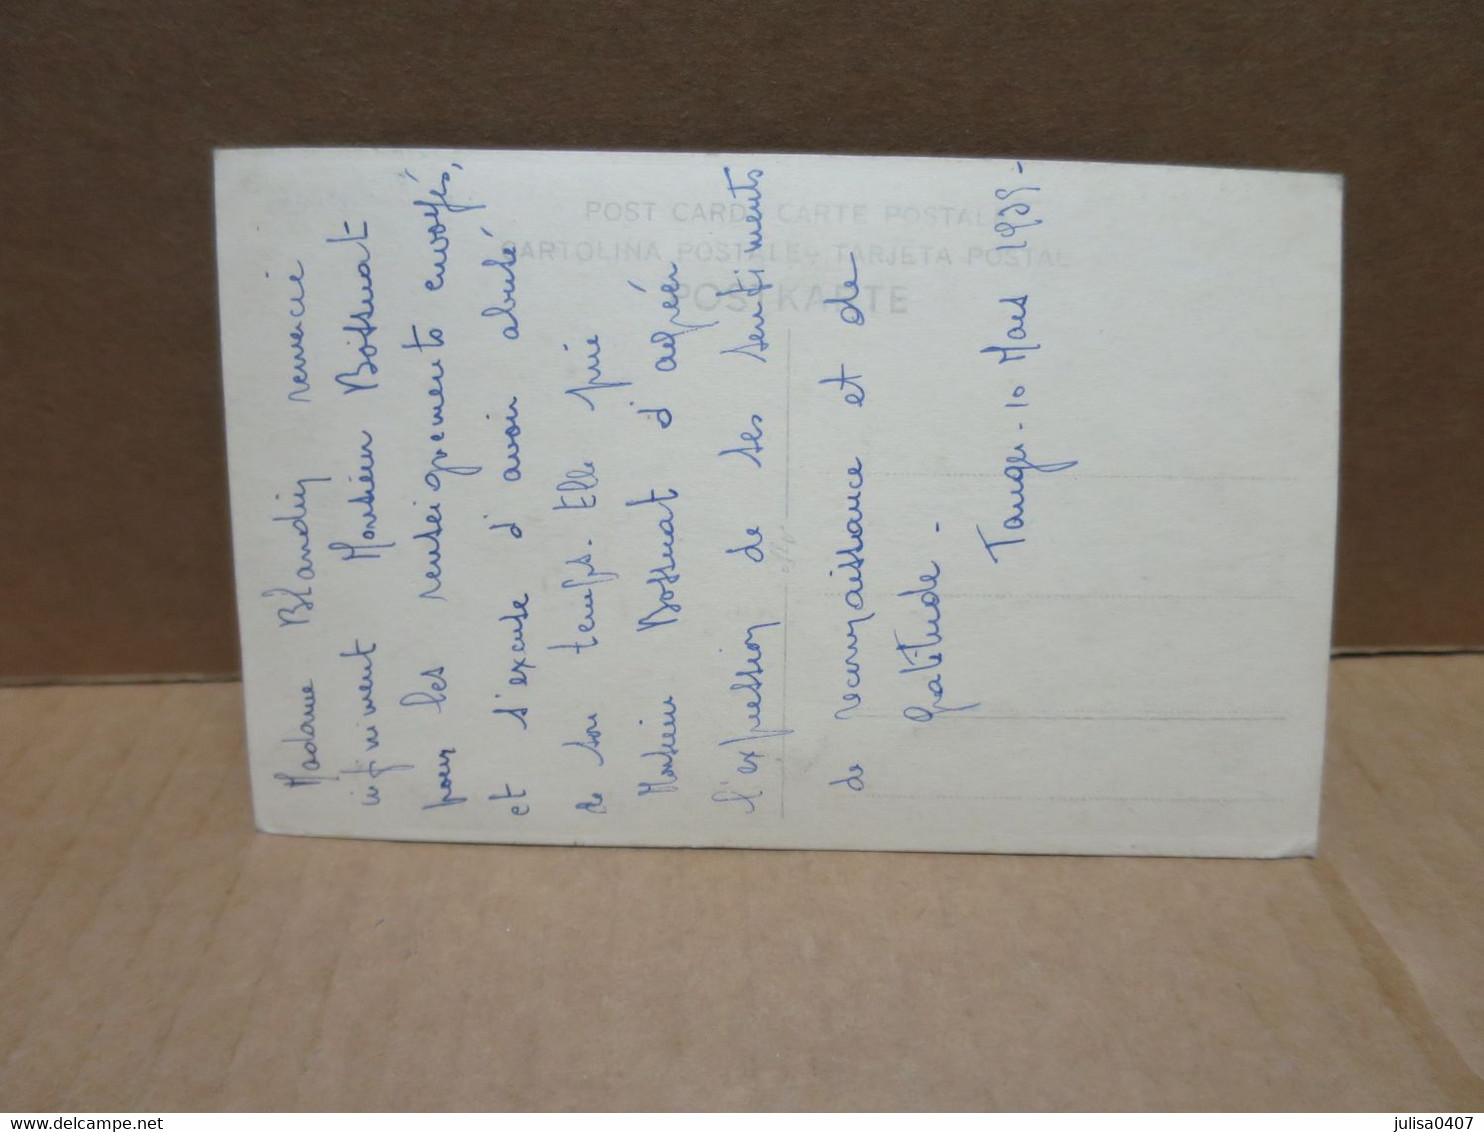 POST CARD CARTE POSTALE
CARTOLINA POSTALE TARJETA POSTAL
POSTKARTE
Madame Blandin remercie
infiniment Monsieur Bossuat
pour les renseignements envoyés,
et s'excuse d'avoir abusé
de son temps. Elle prie
Monsieur Bossuat d'agréer
l'expression de ses sentiments
de reconnaissance et de
gratitude -
Tanger - 10 Mars 1939 -
julisa0407
delcampe.net